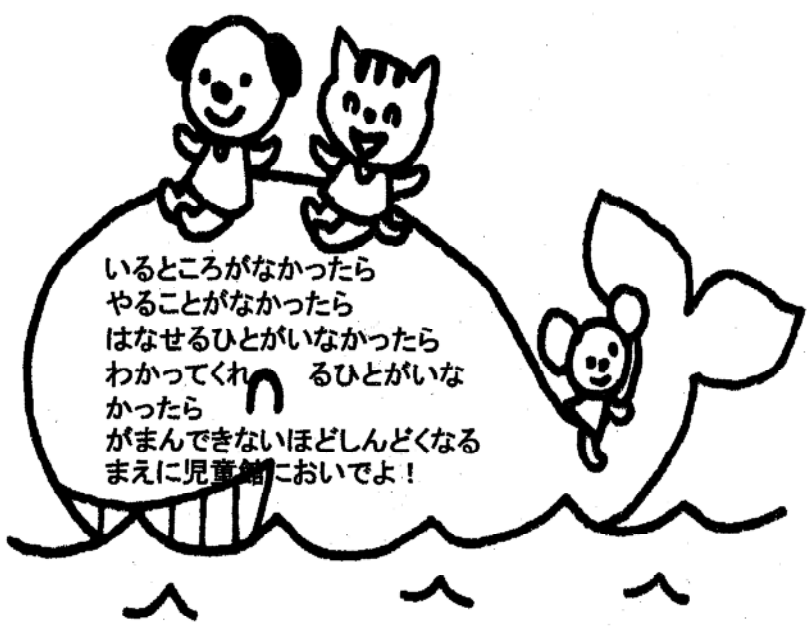 いるところがなかったら
やることがなかったら
はなせるひとがいなかったら
わかってくれ　　るひとがいな
かったら
がまんできないほどしんどくなる
まえに児童館においでよ！